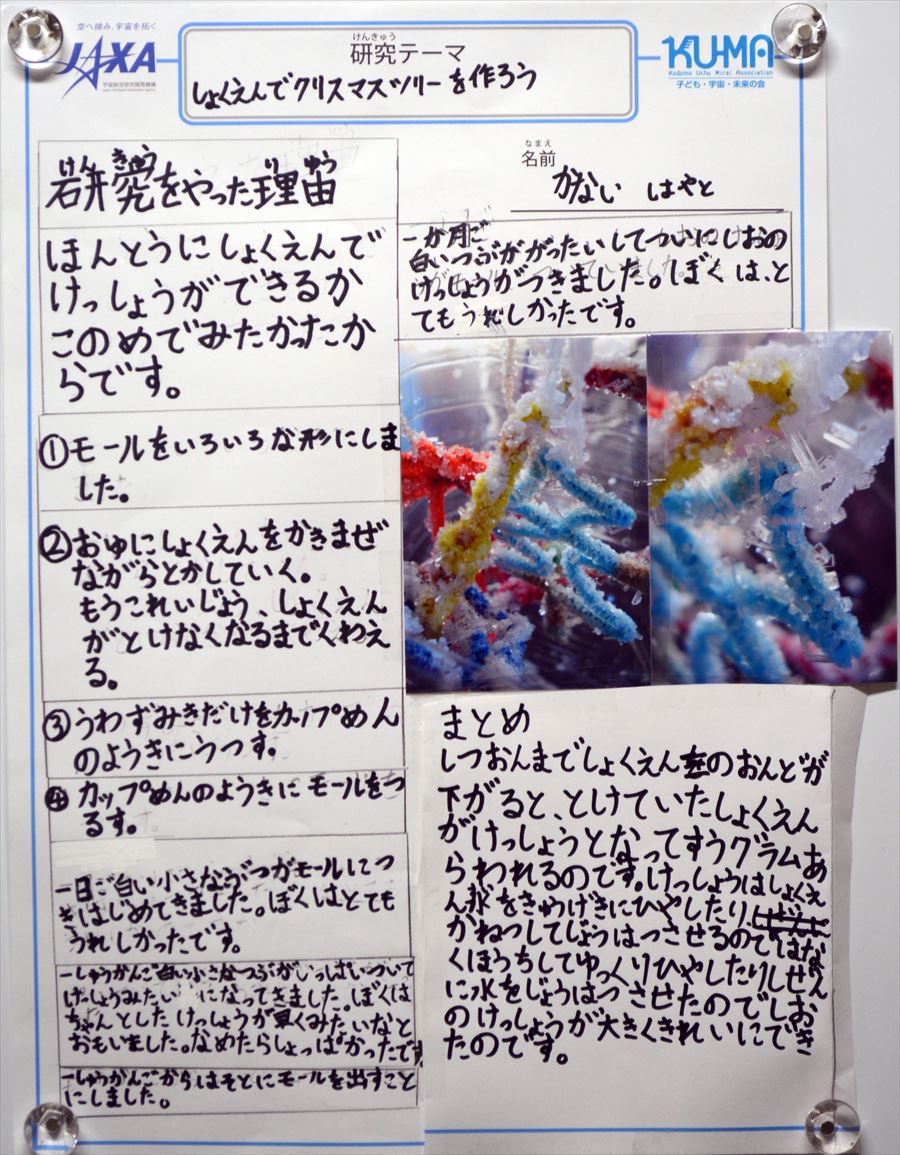 空へ挑み、宇宙を拓く
JAXA
宇宙航空研究開発機構
Japan Aerospace Exploration Agency
けんきゅう
研究テーマ
しょくえんでクリスマスツリーを作ろう
KU-MA
Kodomo Uchu Mirai Association
子ども・宇宙・未来の会
なまえ
名前
かない はやと
けんきゅう りゆう
研究をやった理宙
ほんとうにしょくえんで
けっしょうができるか
このめでみたかったか
らです。
①モールをいろいろな形にしま
した。
②おゆにしょくえんをかきまぜ
ながらとかしていく。
もうこれいじょう、しょくえん
がとけなくなるまでくわえ
る。
③うわずみきだけをカップめん
のようきにうつす。
④カップめんのようきにモールをつ
るす。
一日ご白い小さなぶつがモールにつ
きはじめてきました。ぼくはとても
うれしかったです。
一しゅうかんご白い小さなつぶがいっぱいついて
けっしょうみたいになってきました。ぼくは
ちゃんとしたけっしょうが早くみたいなと
おもいました。なめたらしょっぱかったです
一しゅうかんごからはそとにモールを出すこと
にしました。
一か月ご
白いつぶががったいしてついにしおの
けっしょうがつきました。ぼくは、と
てもうれしかったです。
まとめ
しつおんまでしょくえん水のおんどが
下がると、とけていたしょくえん
がけっしょうとなってすうグラムあ
らわれるのです。けっしょうはしょくえ
ん水をきゅうげきにひやしたり
かねつしてじょうはつさせるのではな
くほうちしてゆっくりひやしたりしぜん
に水をじょうはつさせたのでしお
のけっしょうが大きくきれいにでき
たのです。